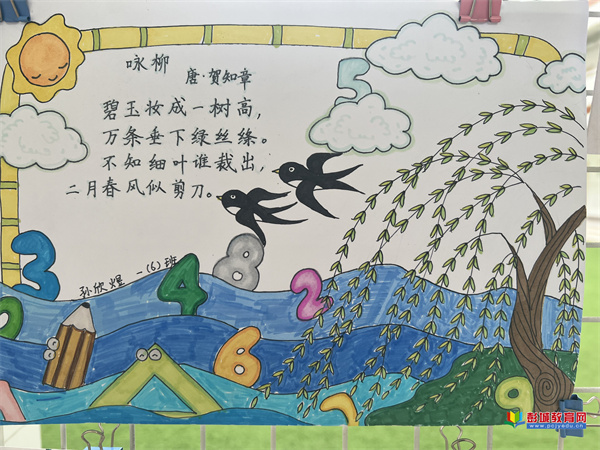 咏柳
唐·贺知章
碧玉妆成一树高，
万条垂下绿丝绦。
不知细叶谁裁出，
二月春风似剪刀。
5
3
4
8
2
孙欣煜 一(6)班
0
6
7
9
彭城教育网
www.pcjyedu.cn